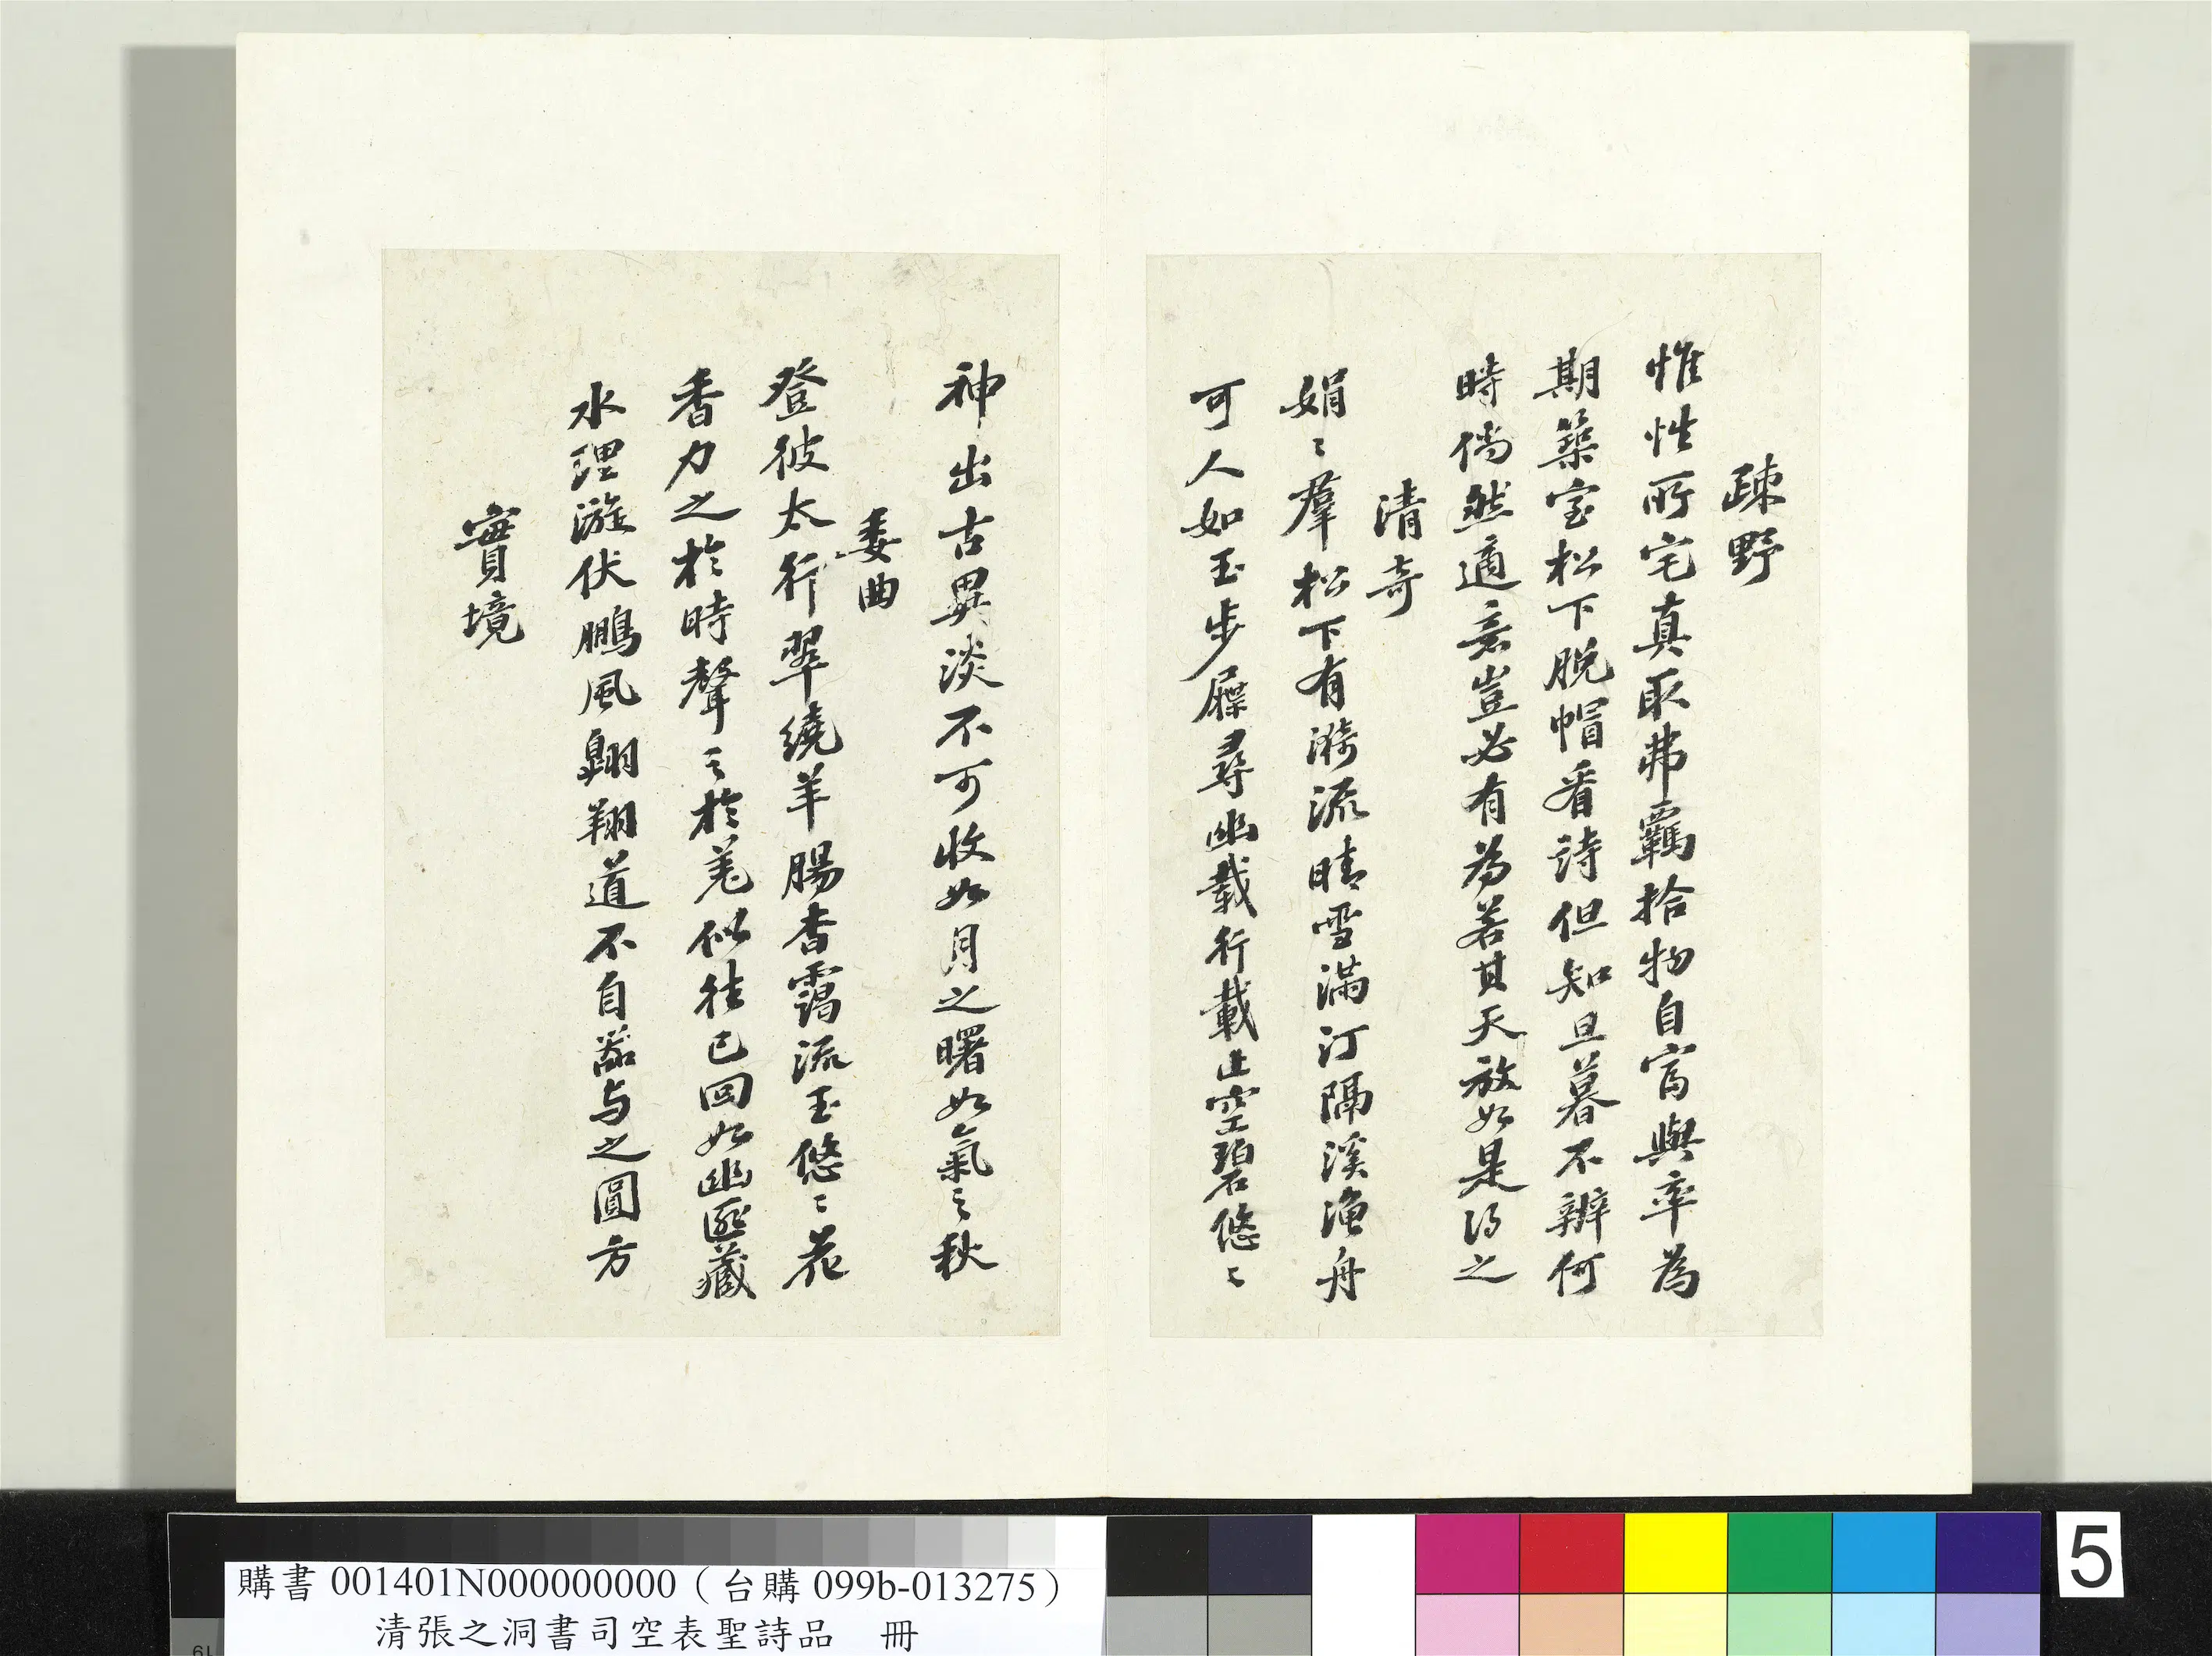 疎野
惟性所宅真取弗羈拾物自富與率為
期築室松下脫帽看詩但知旦暮不辨何
時倘然適意豈必有為若其天放如是得之
清奇
娟〻羣松下有漪流晴雪滿汀隔溪漁舟
可人如玉步屧尋幽載行載止空碧悠〻
神出古異淡不可收如月之曙如氣之秋
委曲
登彼太行翠繞羊腸杳靄流玉悠〻花
香力之於時聲之於羌似往已回如幽匪藏
水理漩伏鵬風翺翔道不自器与之圓方
實境
購書 001401N000000000（台購 099b-013275）
清張之洞書司空表聖詩品 冊
5
19